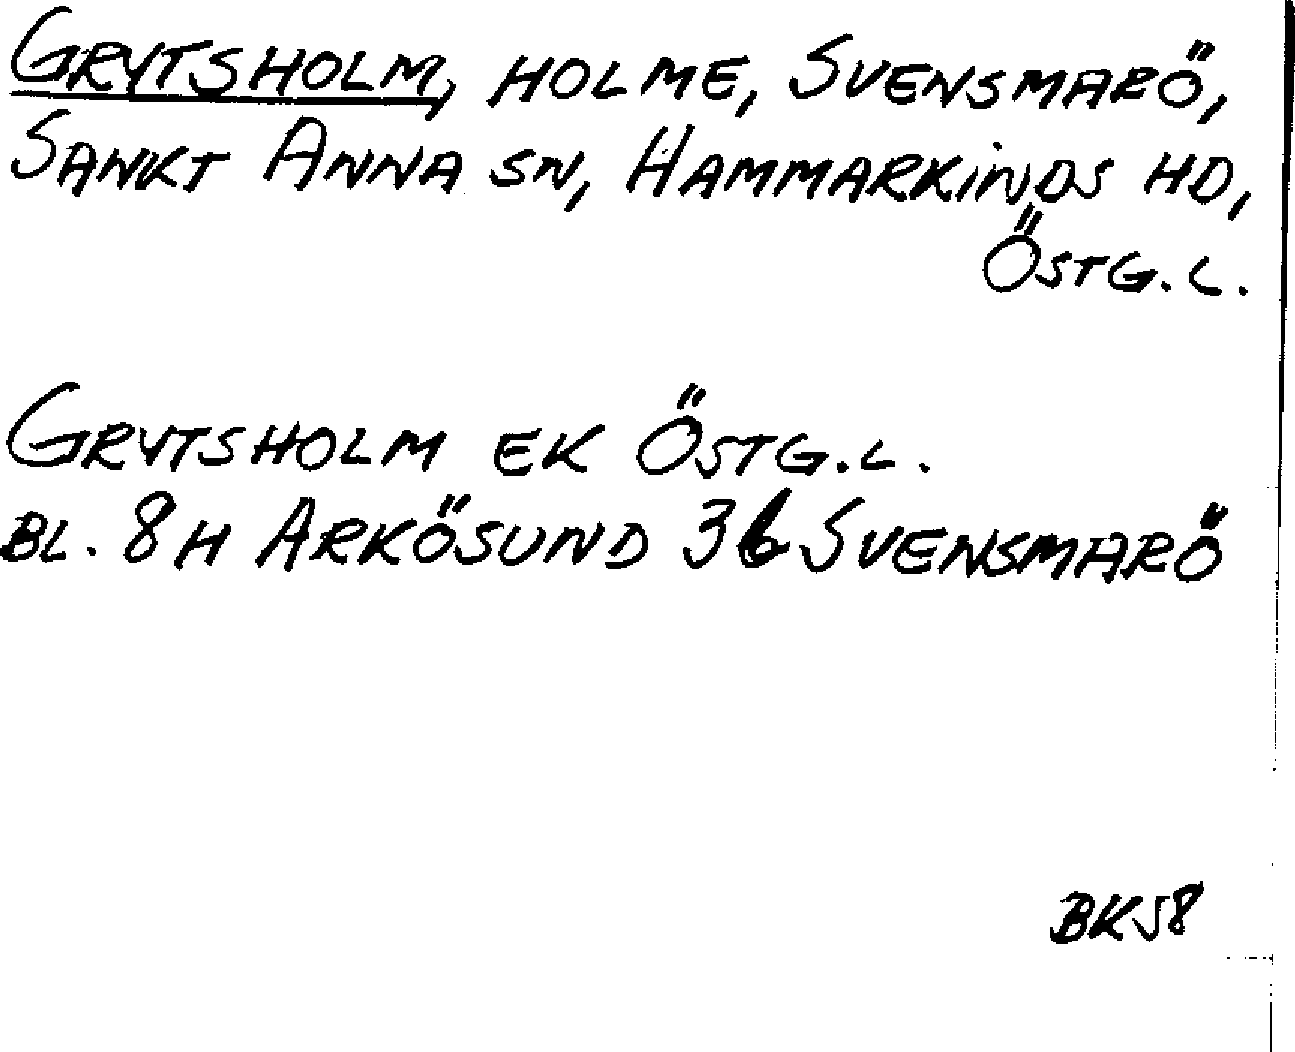 GRYTSHOLM, HOLME, SVENSMARÖ,
SANKT ANNA SN, HAMMARKINDS HD,
ÖSTG.L.
GRYTSHOLM EK ÖSTG.L.
BL. 8H ARKÖSUND 3b SVENSMARÖ
BK58